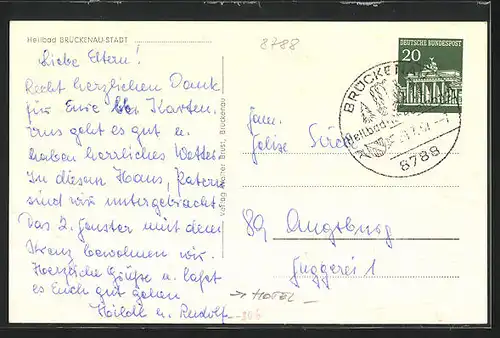 Heilbad BRÜCKENAU-STADT
8788
Liebe Eltern!
Recht herzlichen Dank
für Eure lb. Karten.
Uns geht es gut u.
haben herrliches Wetter.
In diesem Haus,
sind wir untergebracht.
Das 2. Fenster mit dem
Kreuz bewohnen wir.
Herzliche Grüße u. laßt
es Euch gut gehen
Hilde u. Rudolf
Verlag Brust, Brückenau
DEUTSCHE BUNDESPOST
20
BRÜCKENAU
Heilbad
8788
Fam.
89 Augsburg
Fuggerei 1
→ HOTEL –